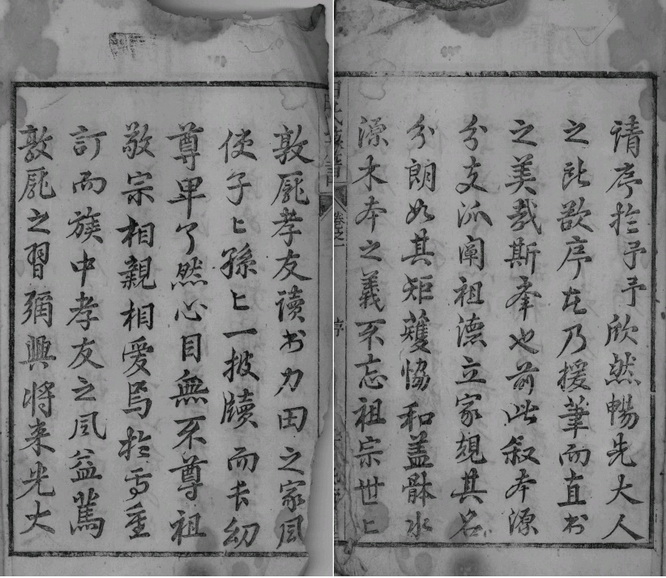 请序於予予欣然暢先大人
之所欲序友乃援筆而直书
之美哉斯举也前此叙本源
分支派阐祖德立家規其名
分朗如其矩蒦恊和盖体水
源木本之義不忘祖宗世匕
卷之一
序
敦厖孝友读书力田之家風
使子匕孫匕一披牘而长幼
尊卑了然心目無不尊祖
敬宗相親相愛焉於重
訂而族中孝友之風益篤
敦厖之習彌興將来光大